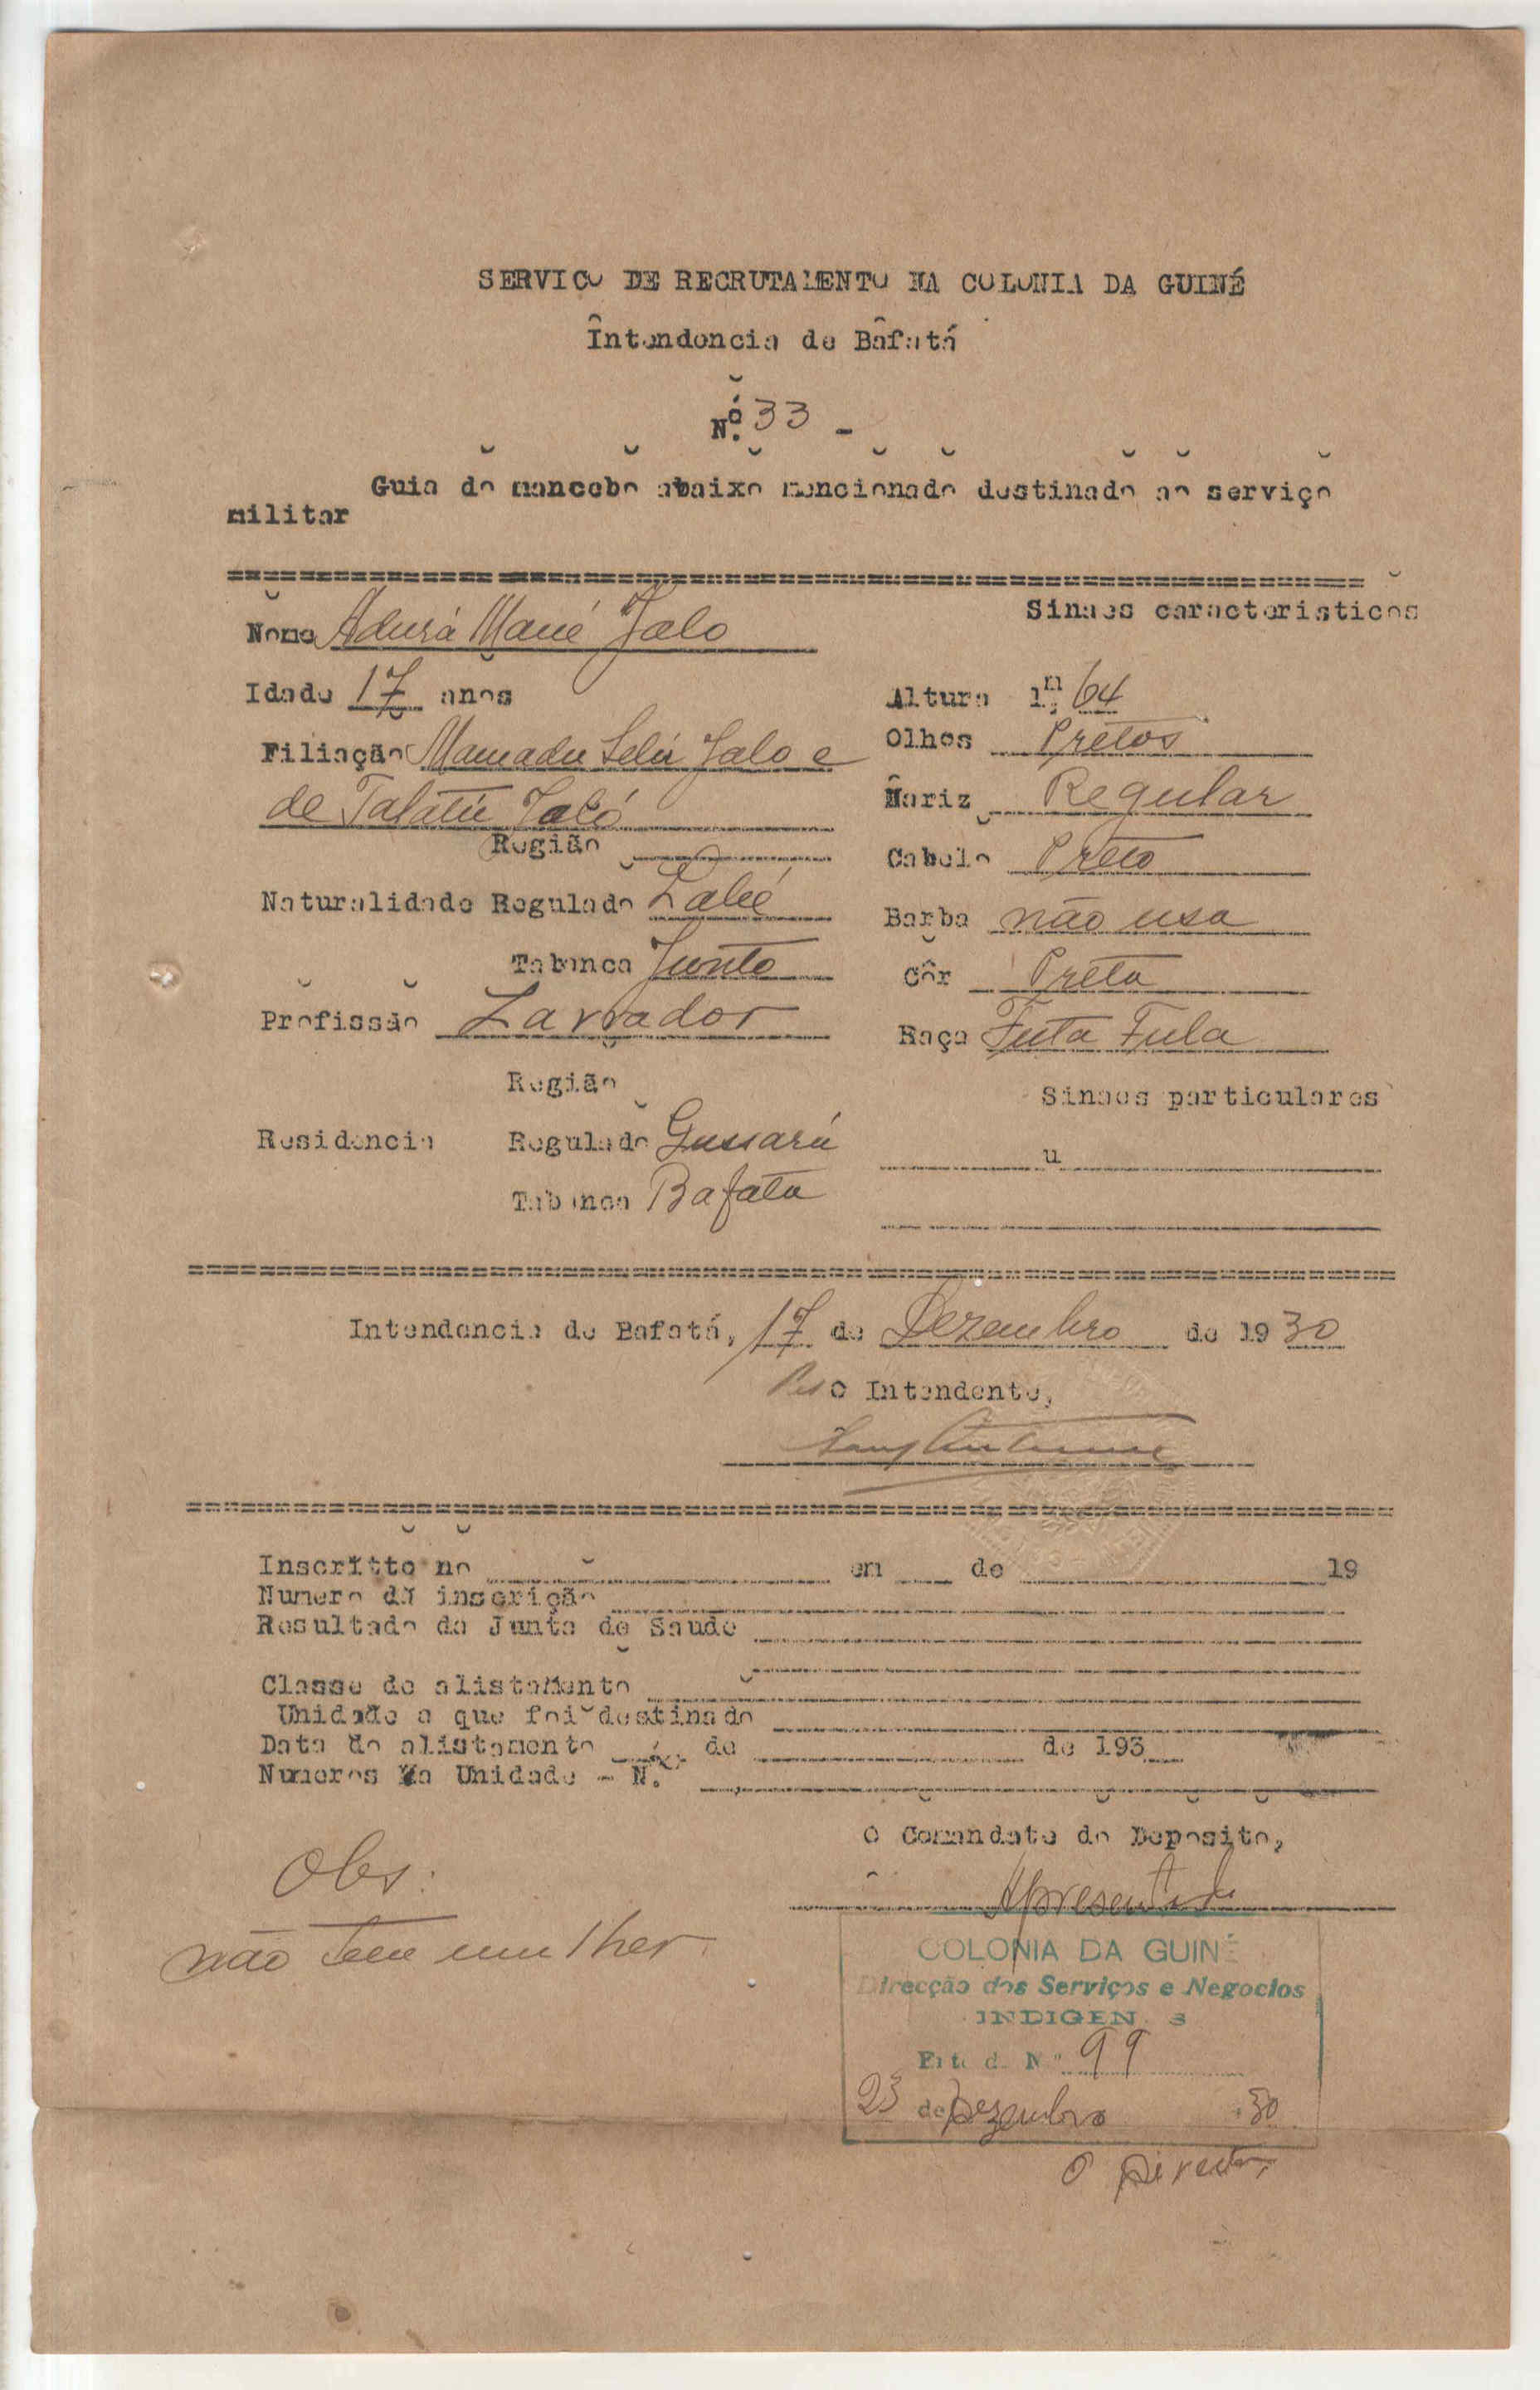 SERVIÇO DE RECRUTAMENTO NA COLONIA DA GUINÉ
Intendencia de Bafatá
Nº. 33 -
Guia do mancebo abaixo mencionado destinado ao serviço
militar
Sinaes caracteristicos
Nome Adurá Mané Jalo
Idade 17 anos
Altura 1m, 64
Filiação Mamadu Selú Jalo e
Olhos Pretos
de Talatú Jaló
Nariz Regular
Região
Cabelo Preto
Naturalidade Regulado Labé
Barba não usa
Tabanca Junto
Côr Preta
Profissão Lavrador
Raça Futa Fula
Região
Sinaes particulares
Residencia Regulado Gussará
Tabanca Bafata
Intendencia de Bafatá, 17 de Dezembro de 1930
O Intendente,
Inscritto no em de 19
Numero da inscrição
Resultado da Junta de Saude
Classe de alistamento
Unidade a que foi destinado
Data do alistamento de de 193
Numeros na Unidade - N.
O Comandate do Deposito,
Obs:
não tem mulher
Apresentado
COLONIA DA GUINÉ
Direcção dos Serviços e Negocios
INDIGENAS
Nº 99
23 de Dezembro 30
O Director